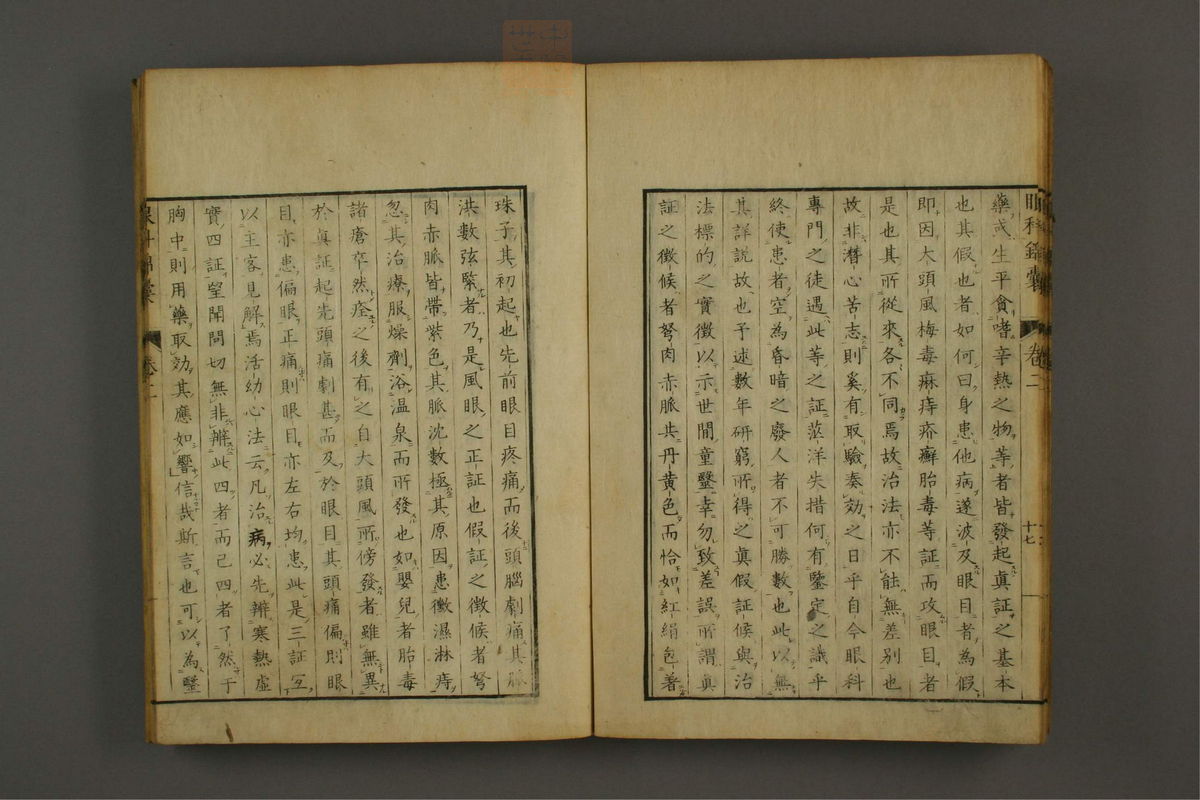 眼科錦囊 卷二 十七
藥或生平貪嗜辛熱之物等者皆發起眞証之基本
也其假也者如何曰身患他病遂波及眼目者為假
即因大頭風梅毒麻痔疥癬胎毒等証而攻眼目者
是也其所從來各不同焉故治法亦不能無差別也
故非潛心苦志則奚有取驗奏効之日乎自今眼科
專門之徒遇此等之証茫洋失措何有鑒定之識乎
終使患者空為昏暗之廢人者不可勝數也此以無
其詳說故也予述數年研窮所得之眞假証候與治
法標的之實徵以示世間童蒙幸勿致差誤所謂眞
証之徵候者弩肉赤脈共丹黃色而恰如紅絹包著
珠子其初起也先前眼目疼痛而後頭腦劇痛其脈
洪數弦緊者乃是風眼之正証也假証之徵候者弩
肉赤脈皆帶紫色其脈沈數極其原因患黴濕淋痔
忽其治療服燥劑浴温泉而所發也如嬰兒者胎毒
諸瘡卒然痊之後有之自大頭風所傍發者雖無異
於眞証起先頭痛劇甚而及於眼目其頭痛偏則眼
目亦患偏眼正痛則眼目亦左右均患此是三証互
以主客見解焉活幼心法云凡治病必先辨寒熱虛
實四証望聞問切無非辨此四者而己四者了然于
胸中則用藥取効其應如響信哉斯言也可以為醫
眼科錦囊 卷二